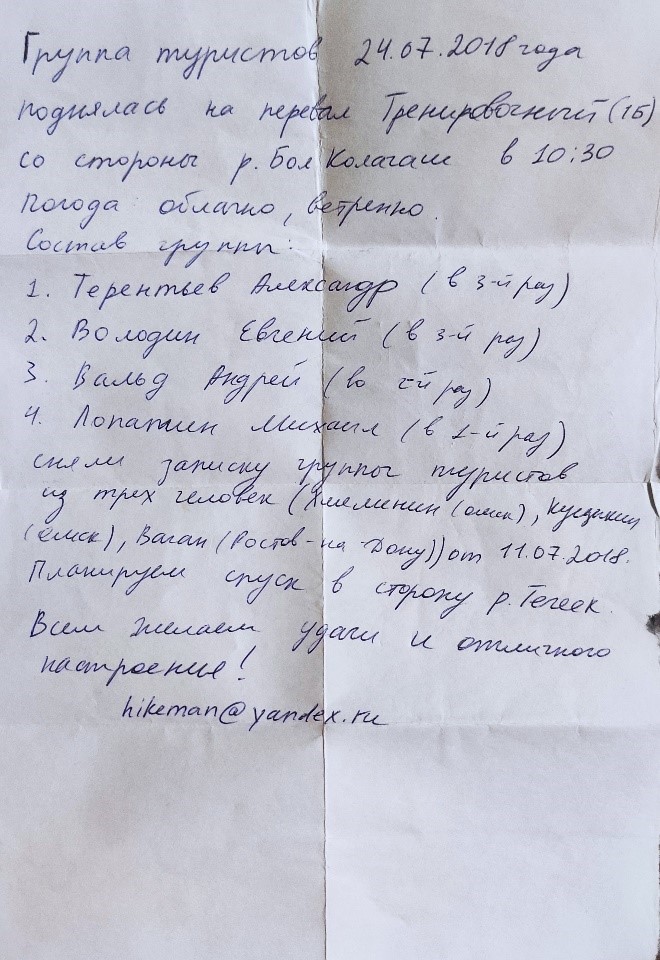 Группа туристов 24.07.2018 года
поднялась на перевал Тренировочный (1Б)
со стороны р. Бол Колагаш в 10:30
Погода: облачно, ветренно.
Состав группы:
1. Терентьев Александр (в 3-й раз)
2. Володин Евгений (в 3-й раз)
3. Вальд Андрей (во 2-й раз)
4. Лопатин Михаил (в 1-й раз)
сняли записку группы туристов
из трех человек ( (Омск),
(Омск), Ваган (Ростов-на-Дону)) от 11.07.2018.
Планируем спуск в сторону р. Тегеек.
Всем желаем удачи и отличного
настроения!
hikeman@yandex.ru